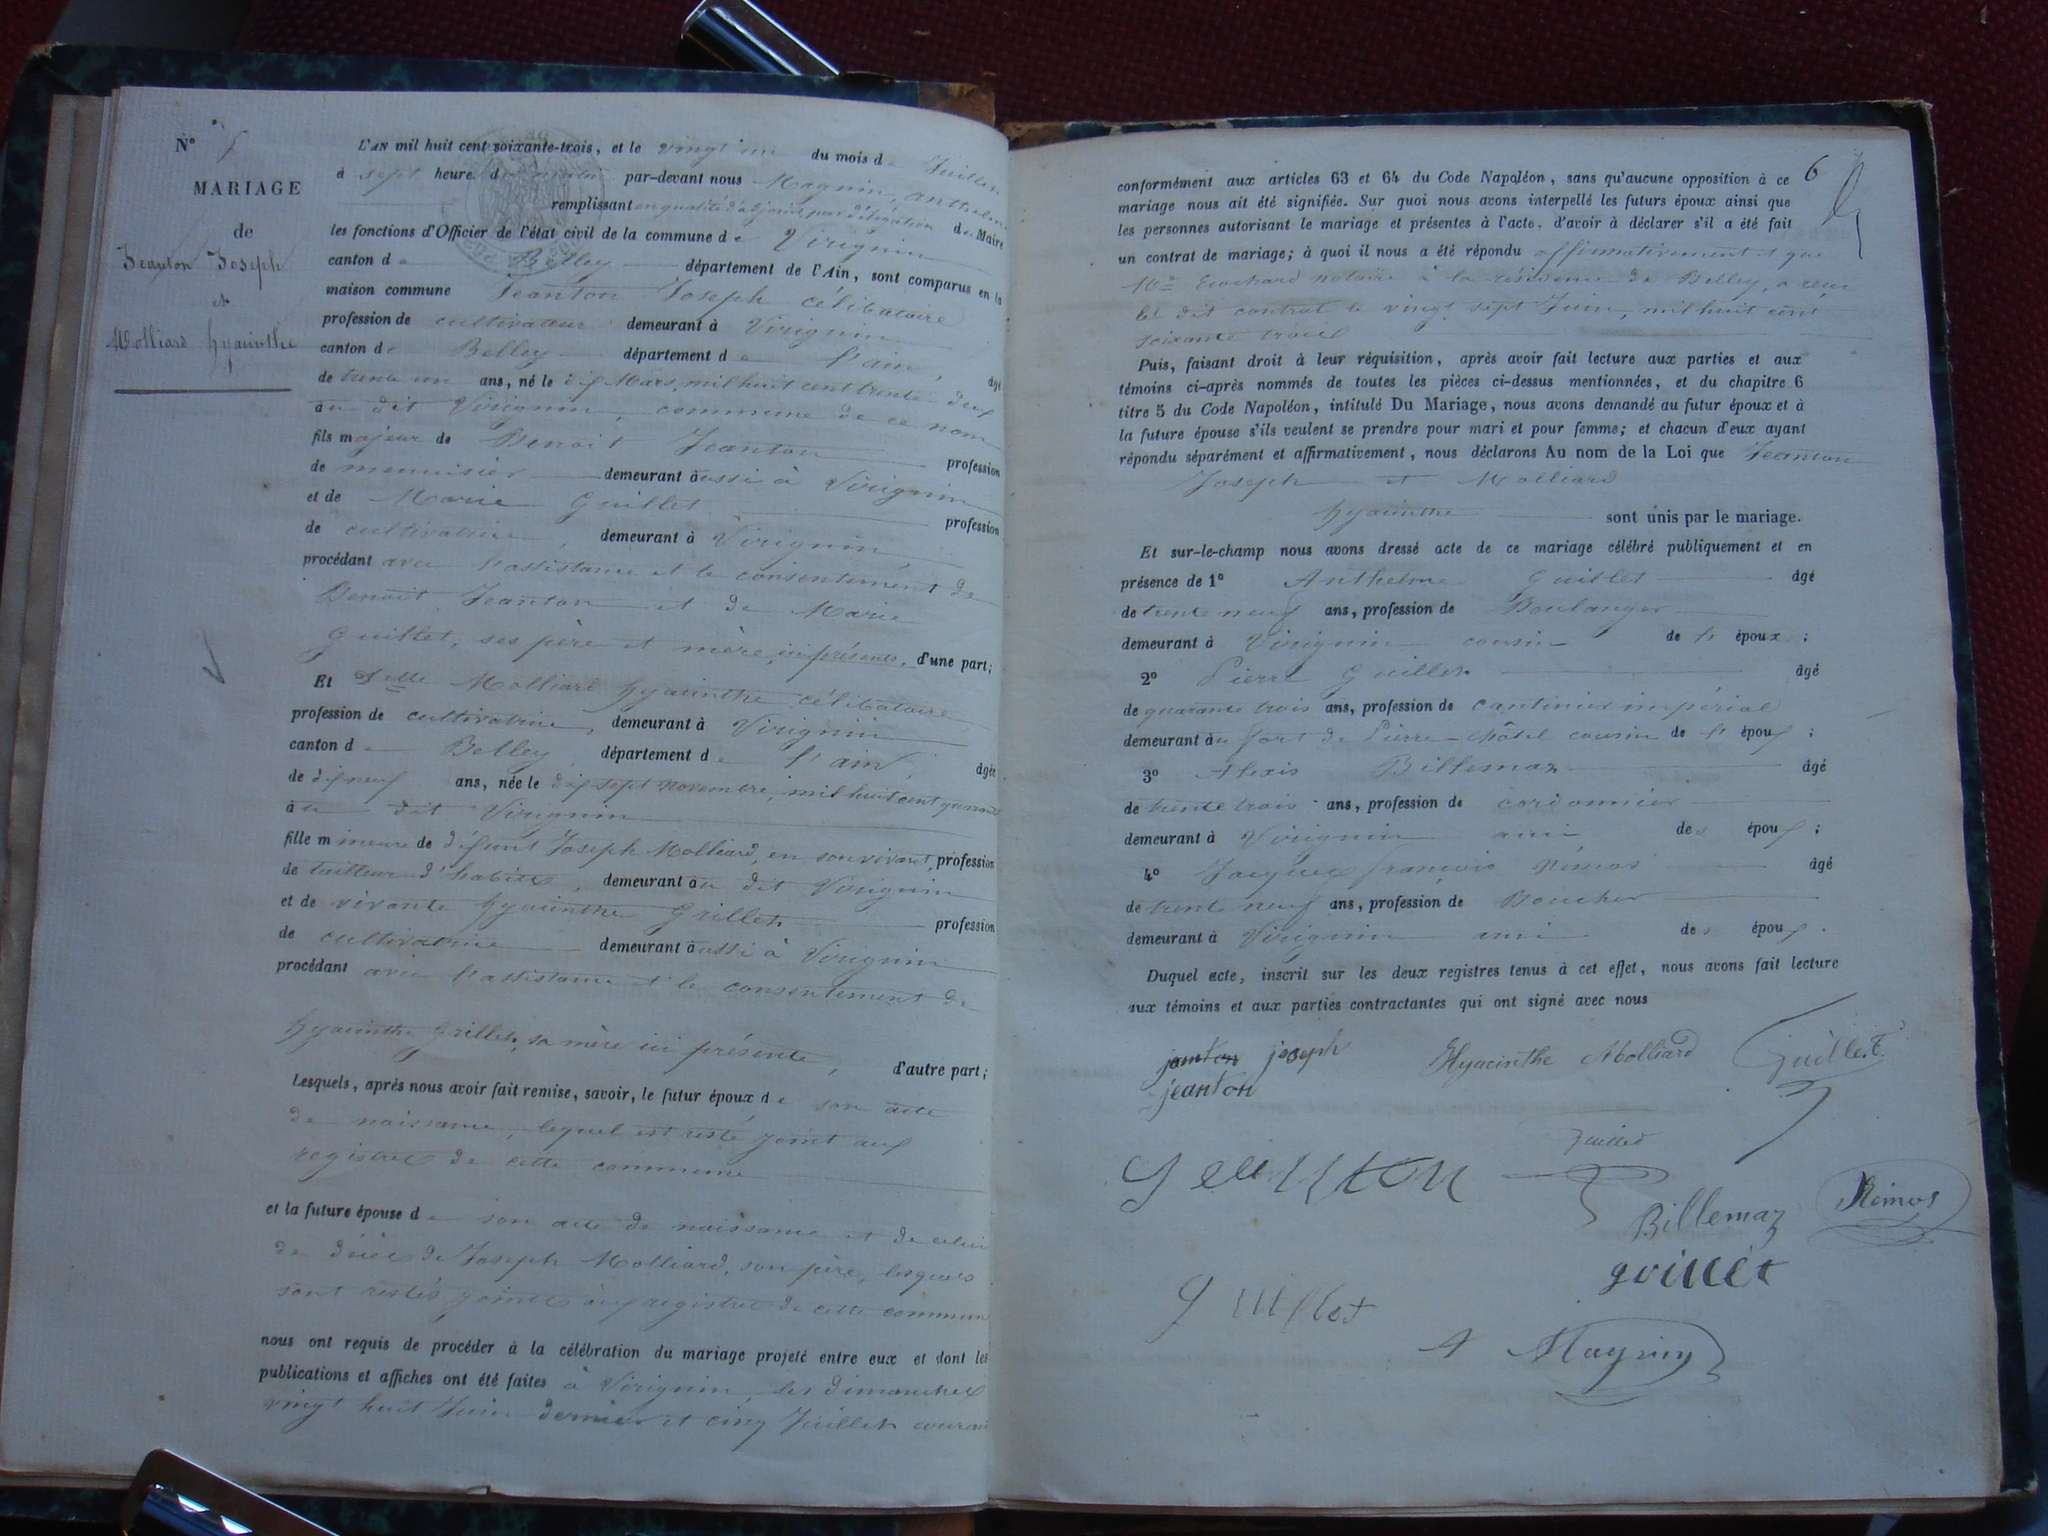 N°
MARIAGE
de
Jeanton Joseph
et
Molliard hyacinthe
L'AN mil huit cent soixante-trois, et le vingt un du mois de Juillet
à sept heure du matin par-devant nous Magnin, anthelme
remplissant en qualité d'adjoint, par délégation du Maire
les fonctions d'Officier de l'état civil de la commune de Virignin
canton de Belley département de l'Ain, sont comparus en la
maison commune Jeanton Joseph célibataire
profession de cultivateur demeurant à Virignin
canton de Belley département de l'ain, âgé
de trente un ans, né le dix Mars, mil huit cent trente deux
au dit Virignin, commune de ce nom
fils majeur de Benoit Jeanton profession
de menuisier demeurant aussi à Virignin
et de Marie Guillet profession
de cultivatrice, demeurant à Virignin
procédant avec l'assistance et le consentement de
Benoit Jeanton et de Marie
Guillet, ses père et mère, ici présents, d'une part;
Et Delle Molliard hyacinthe célibataire
profession de cultivatrice, demeurant à Virignin
canton de Belley département de l'ain, âgée
de dix neuf ans, née le dix sept novembre, mil huit cent quarante
au dit Virignin
fille mineure de défunt Joseph Molliard, en son vivant, profession
de tailleur d'habits, demeurant au dit Virignin
et de vivante hyacinthe Grillet profession
de cultivatrice demeurant aussi à Virignin
procédant avec l'assistance et le consentement de
hyacinthe Grillet, sa mère ici présente, d'autre part;
Lesquels, après nous avoir fait remise, savoir, le futur époux de son acte
de naissance, lequel est resté joint aux
registres de cette commune
et la future épouse de son acte de naissance et de celui
de décès de Joseph Molliard, son père, lesquels
sont restés joints aux registres de cette commune
nous ont requis de procéder à la célébration du mariage projeté entre eux et dont les
publications et affiches ont été faites à Virignin, les dimanches
vingt huit Juin dernier et cinq Juillet courant
6
conformément aux articles 63 et 64 du Code Napoléon, sans qu'aucune opposition à ce
mariage nous ait été signifiée. Sur quoi nous avons interpellé les futurs époux ainsi que
les personnes autorisant le mariage et présentes à l'acte, d'avoir à déclarer s'il a été fait
un contrat de mariage; à quoi il nous a été répondu affirmativement et que
Me notaire à la résidence de Belley, a reçu
le dit contrat le vingt sept Juin, mil huit cent
soixante trois
Puis, faisant droit à leur réquisition, après avoir fait lecture aux parties et aux
témoins ci-après nommés de toutes les pièces ci-dessus mentionnées, et du chapitre 6
titre 5 du Code Napoléon, intitulé Du Mariage, nous avons demandé au futur époux et à
la future épouse s'ils veulent se prendre pour mari et pour femme; et chacun d'eux ayant
répondu séparément et affirmativement, nous déclarons Au nom de la Loi que Jeanton
Joseph et Molliard
hyacinthe sont unis par le mariage.
Et sur-le-champ nous avons dressé acte de ce mariage célébré publiquement et en
présence de 1° Anthelme Guillet âgé
de trente neuf ans, profession de Boulanger
demeurant à Virignin cousin de l'époux;
2° Pierre Guillet âgé
de quarante trois ans, profession de cantinier impérial
demeurant au fort de Pierre-châtel cousin de l'époux;
3° Alexis Billemaz âgé
de trente trois ans, profession de cordonnier
demeurant à Virignin ami des époux;
4° Jacques françois Rémos âgé
de trente neuf ans, profession de Boucher
demeurant à Virignin ami des époux.
Duquel acte, inscrit sur les deux registres tenus à cet effet, nous avons fait lecture
aux témoins et aux parties contractantes qui ont signé avec nous
joseph Hyacinthe Molliard Guillet
jeanton
Guillet
Jeanton
Billemaz Rémos
guillet
Guillet
A Magnin